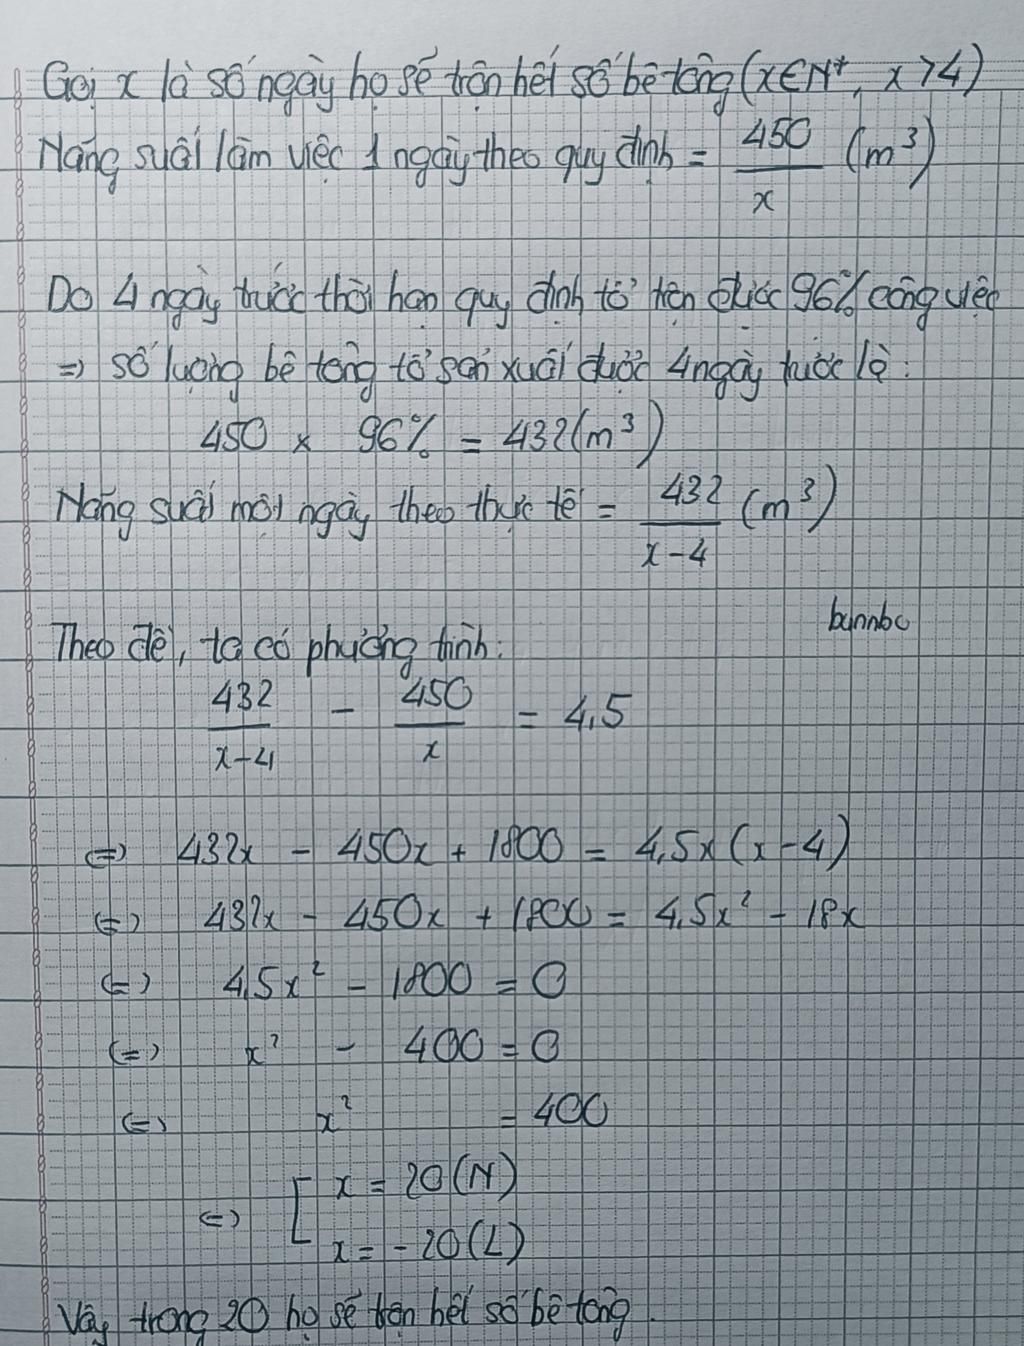 Gọi x là số ngày họ sẽ trộn hết số bê tông (x∈N*, x>4)
Năng suất làm việc 1 ngày theo quy định = 450/x (m³)
Do 4 ngày trước thời hạn quy định tổ trộn được 96% công việc
=> số lượng bê tông tổ sản xuất được 4 ngày trước là:
450 x 96% = 432 (m³)
Năng suất một ngày theo thực tế = 432/(x-4) (m³)
bunnbc
Theo đề, ta có phương trình:
432/(x-4) - 450/x = 4,5
<=> 432x - 450x + 1800 = 4,5x(x-4)
<=> 432x - 450x + 1800 = 4,5x² - 18x
<=> 4,5x² - 1800 = 0
<=> x² - 400 = 0
<=> x² = 400
<=> [ x = 20 (N)
x = -20 (L)
Vậy trong 20 họ sẽ trộn hết số bê tông.